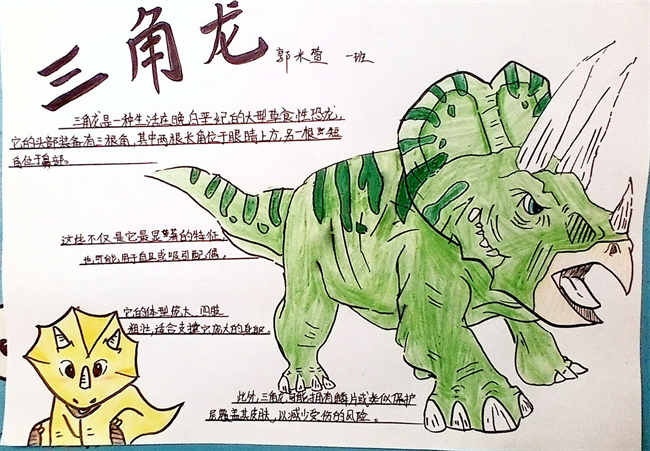 三角龙
郭米萱 一班
三角龙是一种生活在晚白垩纪的大型草食性恐龙,
它的头部装备有三根角,其中两根长角位于眼睛上方,另一根短
角位于鼻部。
这些不仅是它最显著的特征,
也可能用于自卫或吸引配偶。
它的体型庞大,四肢
粗壮,适合支撑它庞大的身躯。
此外,三角龙可能拥有鳞片或类似保护
层覆盖其皮肤,以减少受伤的风险。